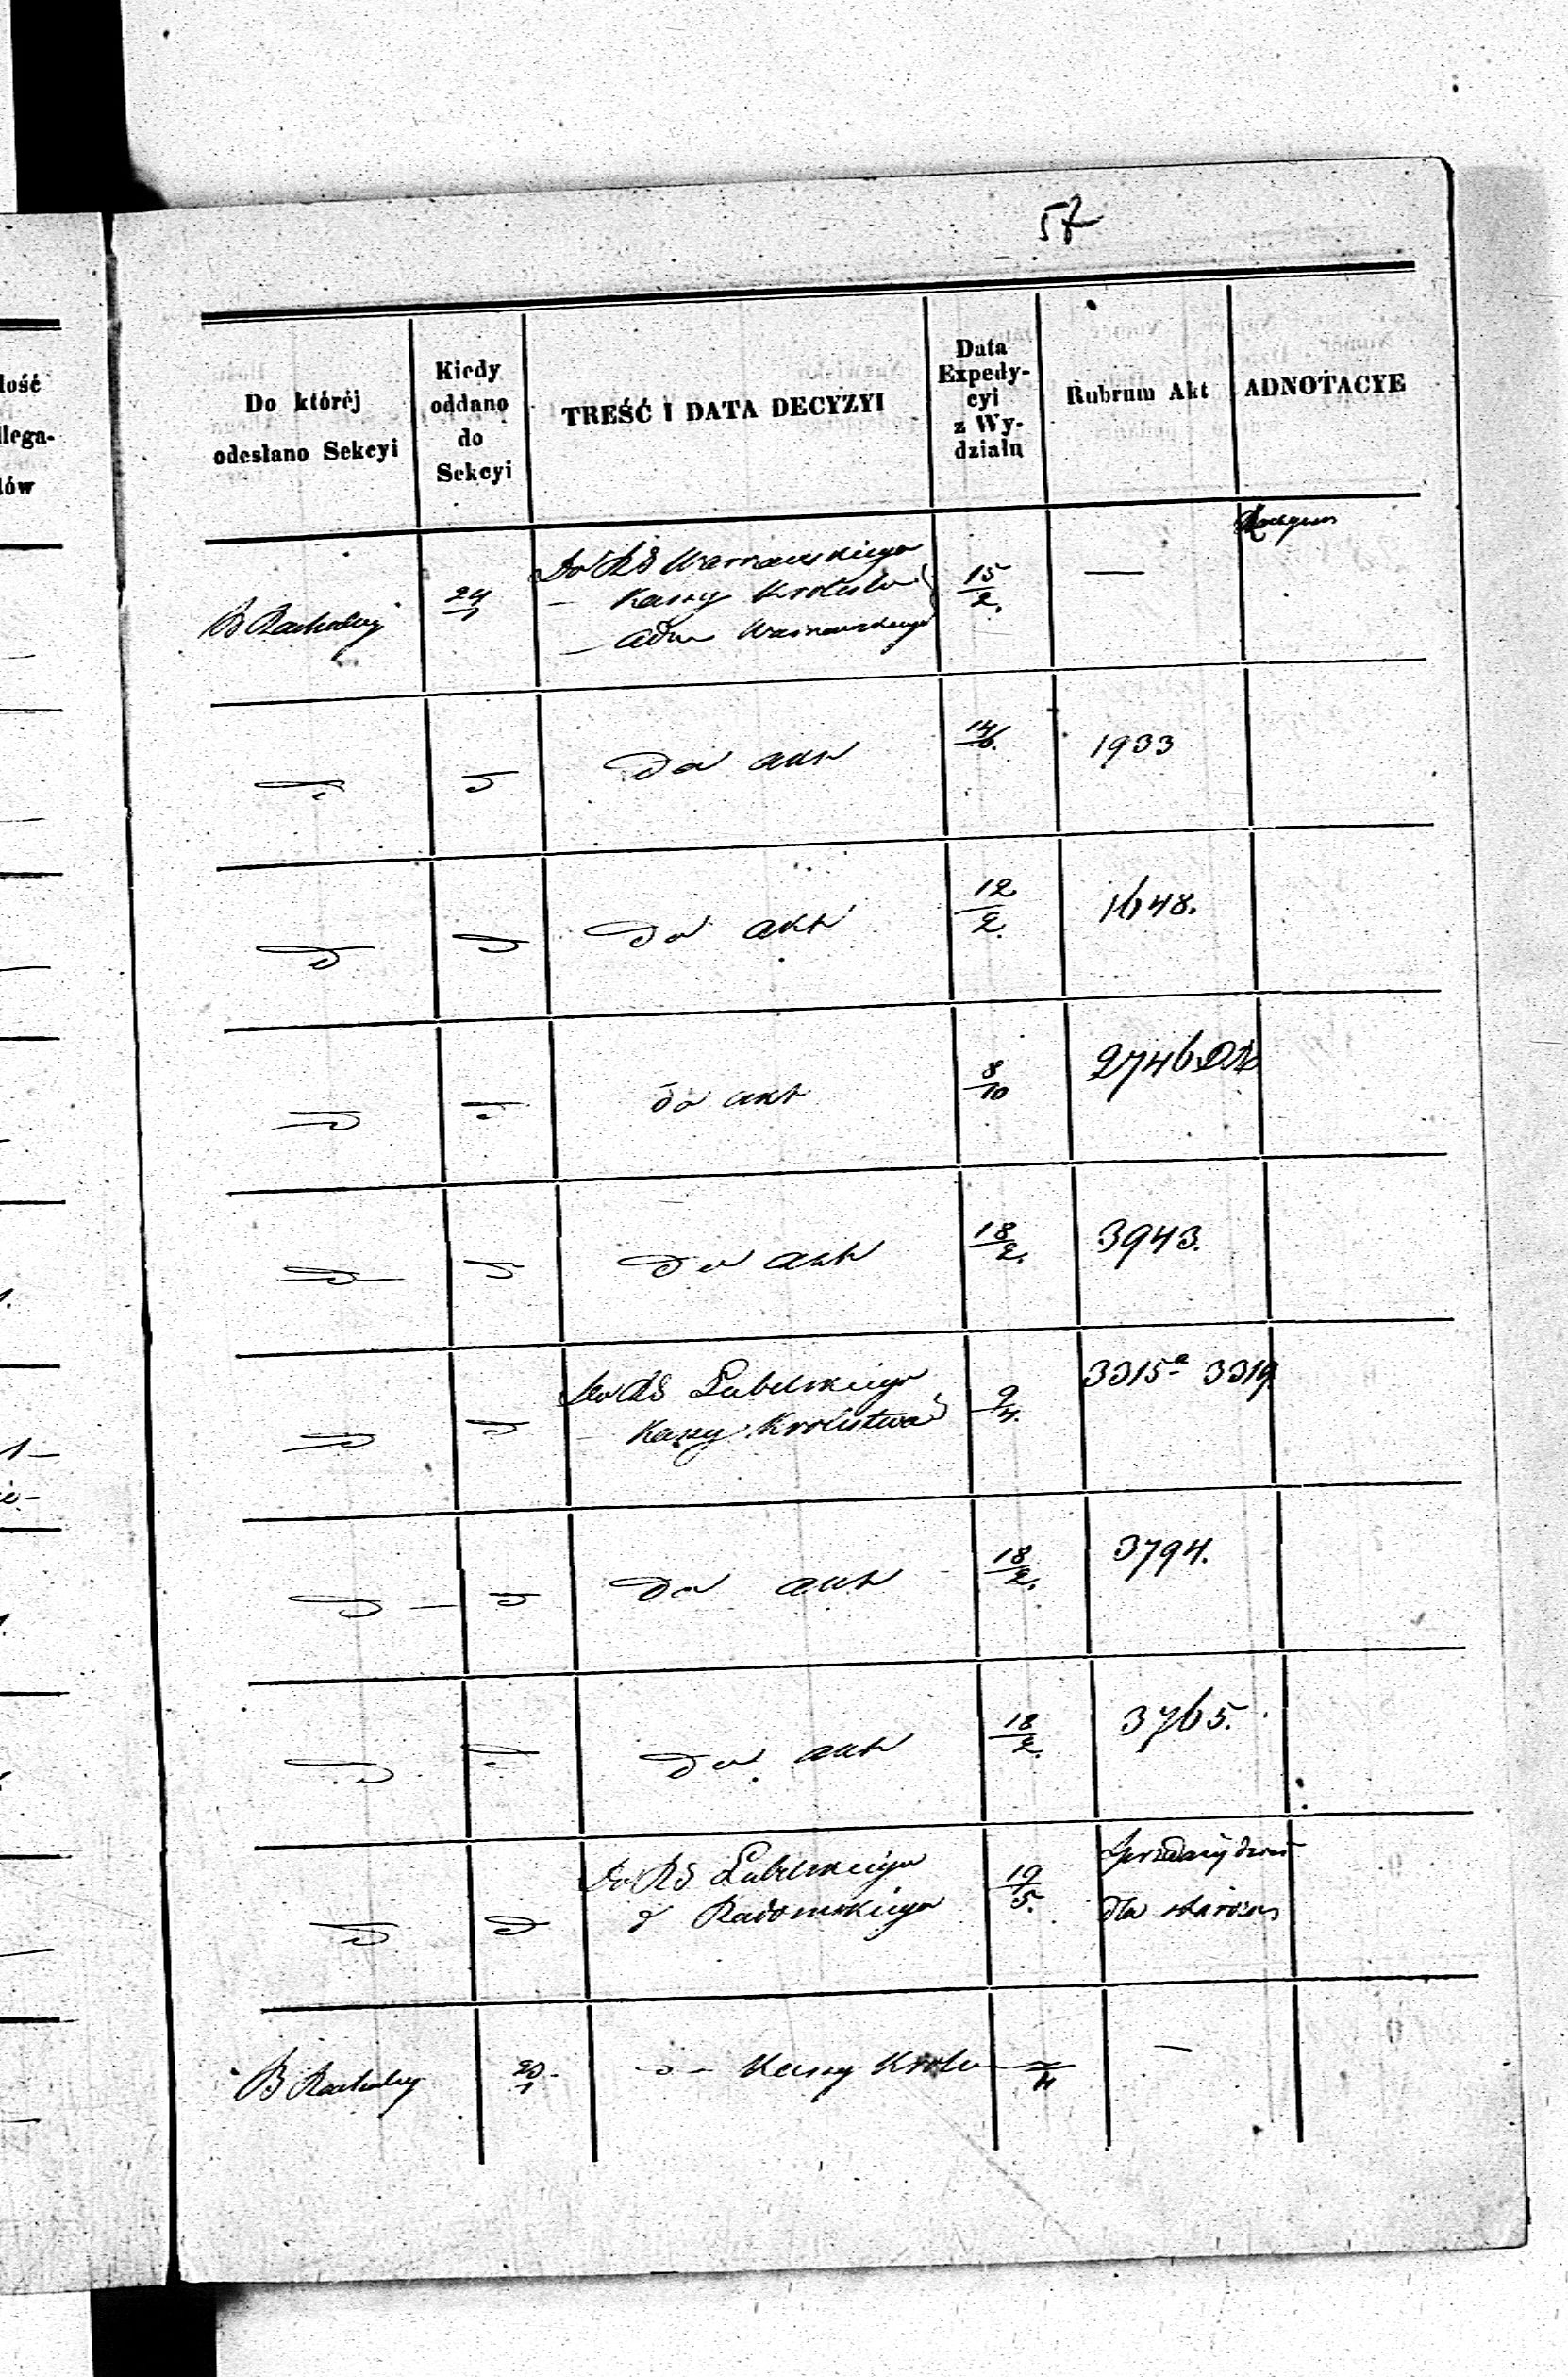 57
lość
llega-
tów
Do któréj
odesłano Sekcyi
Kiedy
oddano
do
Sekcyi
TREŚĆ I DATA DECYZYI
Data
Expedy-
cyi
z Wy-
działu
Rubrum Akt
ADNOTACYE
24/1
Do RG Warszawskiego
— Kassy Królestw
— Adm Warszawskiego
15/2.
—
do akt
14/6.
1933
do akt
12/2.
1648.
do akt
8/10
2746
do akt
18/2.
3943.
Do RG Lubelskiego
Kassy Królestwa
9/4.
3315ª 3319
do akt
18/2.
3794.
do akt
18/2.
3765.
Do RG Lubelskiego
& Radomskiego
19/5.
dla
20/1
Kassy Królw
—